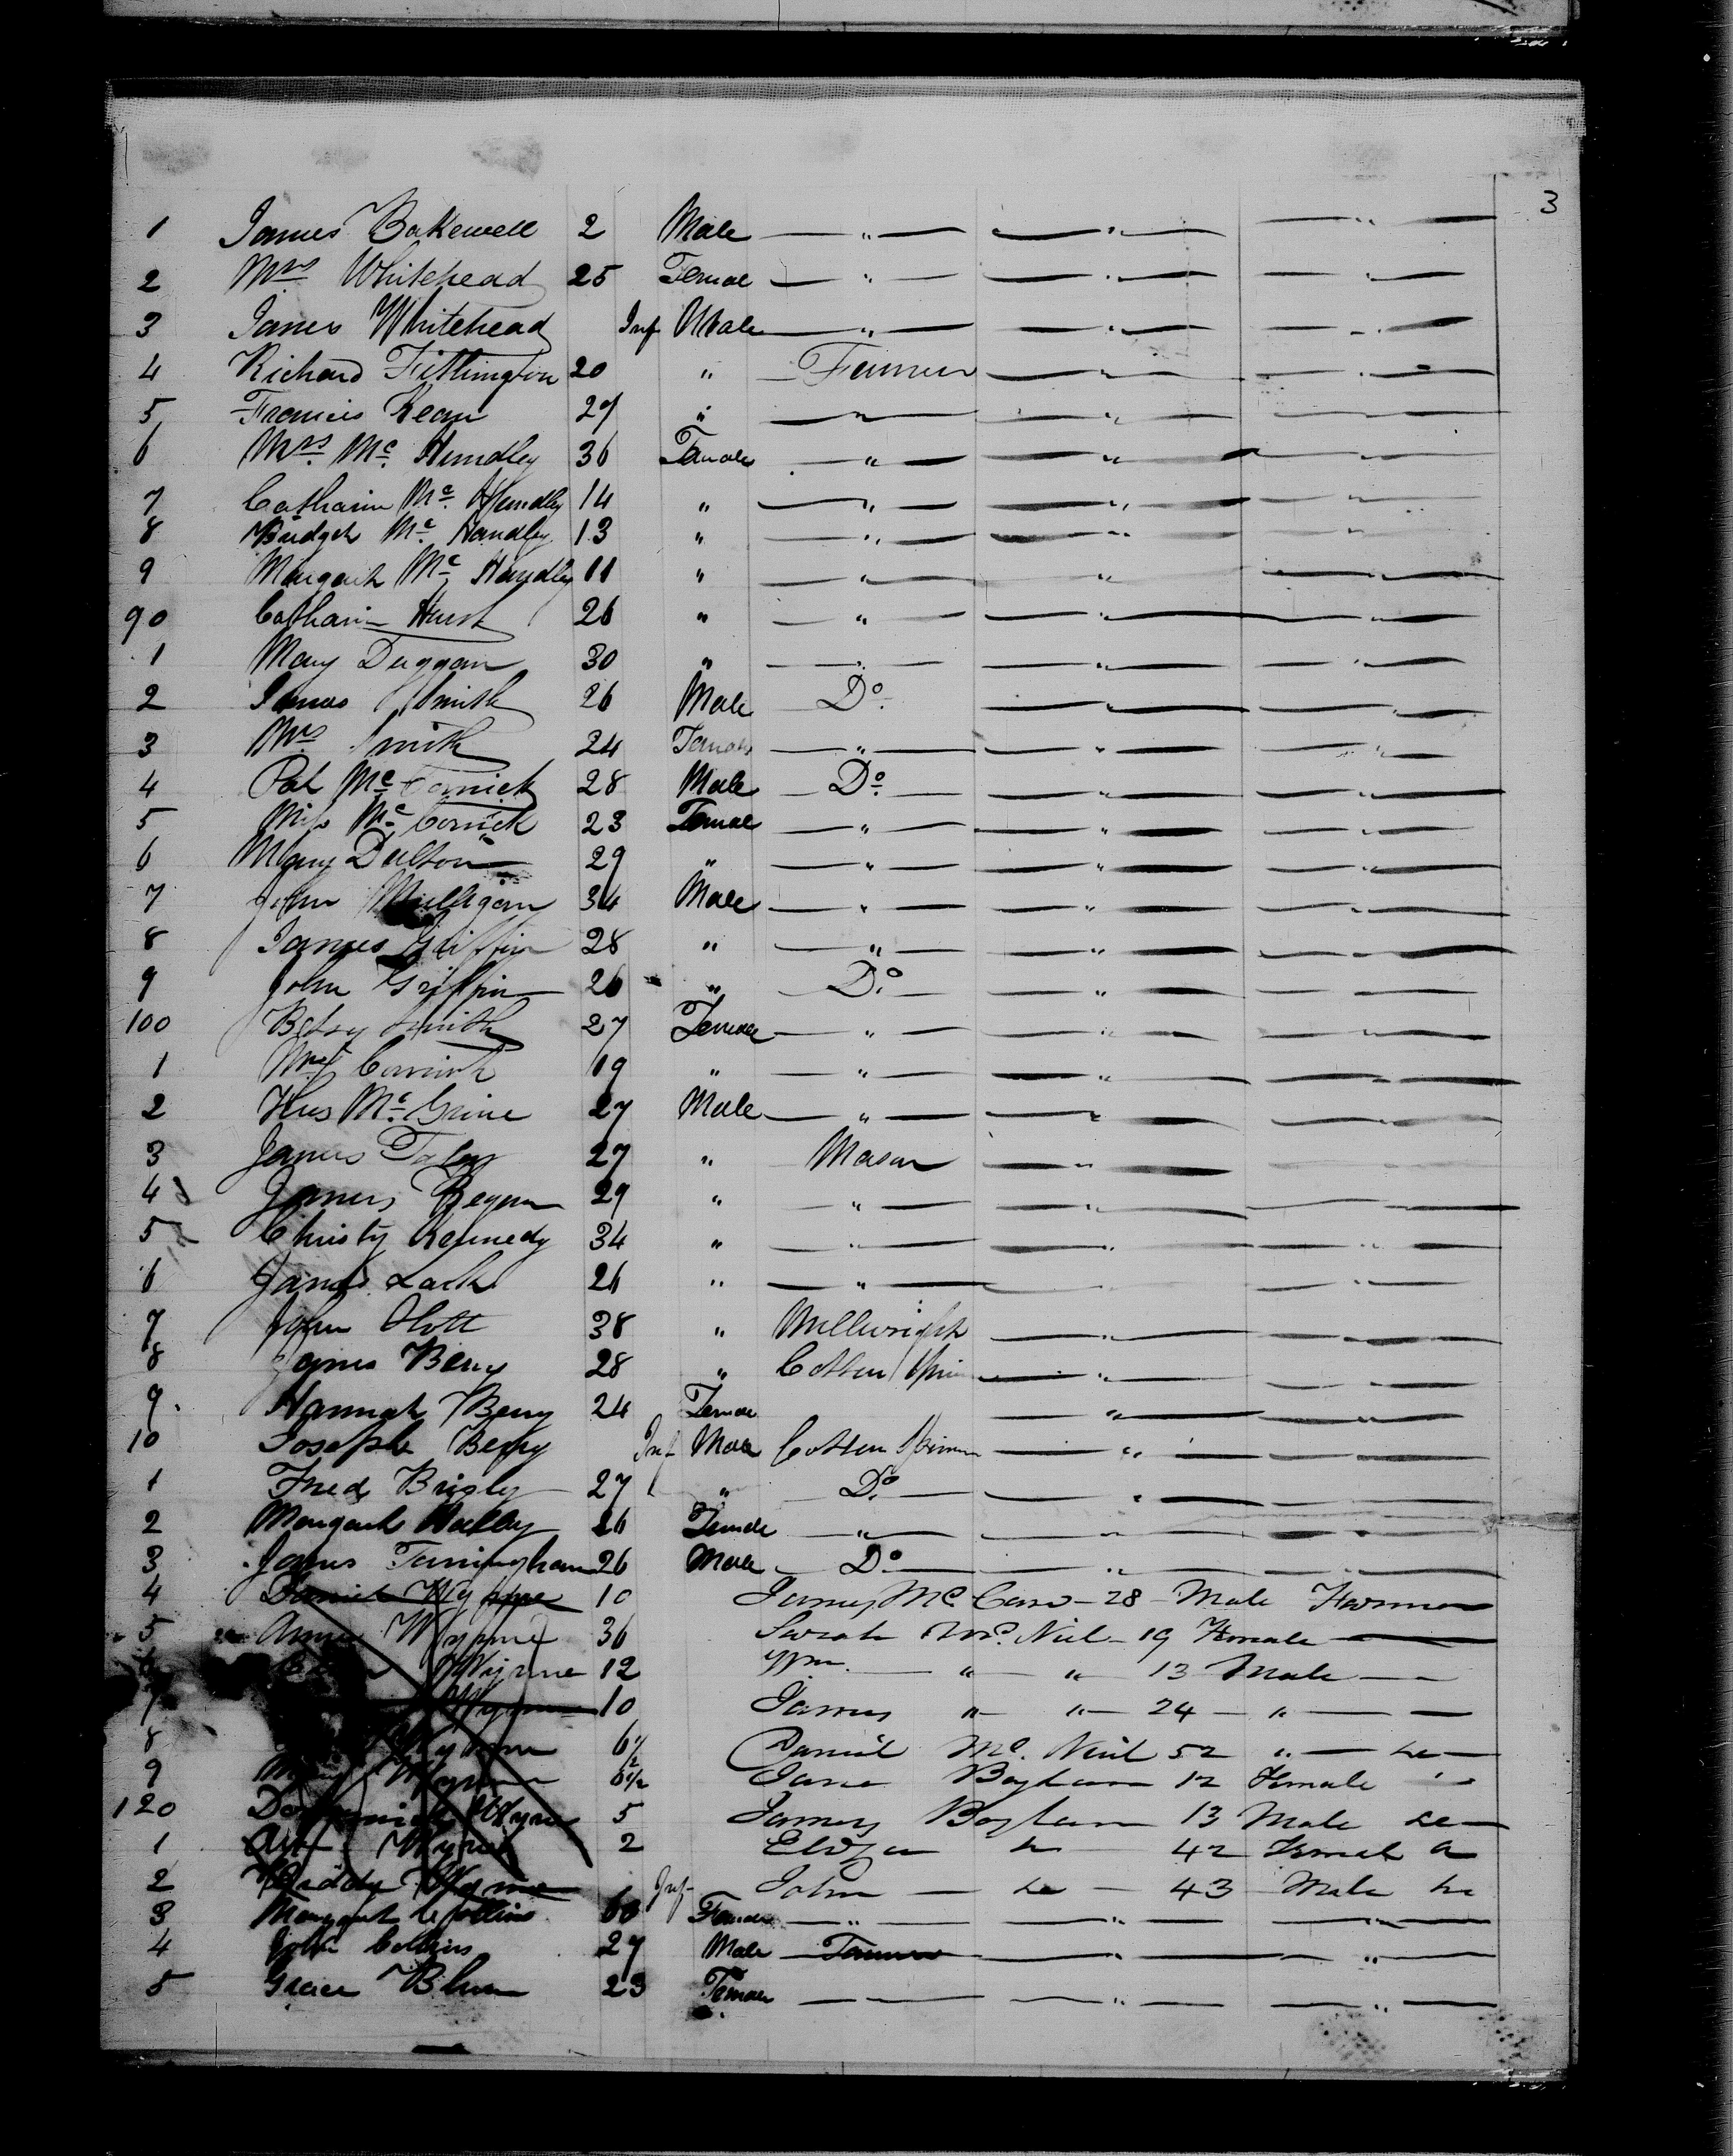 3
1 James Bakewell 2 Male — " — — " — — " —
2 Mrs Whitehead 25 Female — " — — " — — " —
3 James Whitehead Inf Male — " — — " — — " —
4 Richard Fittington 20 " Farmer — " — — " —
5 Francis Kean 27 " — " — — " — — " —
6 Mrs. Mc. Hundley 36 Female — " — — " — — " —
7 Catharin Mc Handley 14 " — " — — " — — " —
8 Bridget Mc Handley 13 " — " — — " — — " —
9 Margaret Mc Handley 11 " — " — — " — — " —
90 Catharin Hurst 26 " — " — — " — — " —
1 Mary Duggan 30 " — " — — " — — " —
2 James Smith 26 Male Do. — " — — " —
3 Mrs Smith 24 Female — " — — " — — " —
4 Pat Mc Cornick 28 Male Do. — " — — " —
5 Miss Mc Cornick 23 Female — " — — " — — " —
6 Mary Dalton 29 " — " — — " — — " —
7 John Mulligan 34 Male — " — — " — — " —
8 James Griffin 28 " — " — — " — — " —
9 John Griffin 26 " Do. — " — — " —
100 Betsy Smith 27 Female — " — — " — — " —
1 19 " — " — — " — — " —
2 Mc 27 Male — " — — " — — " —
3 James 27 " Mason — " — — " —
4 James Regan 29 " — " — — " — — " —
5 Christy Kennedy 34 " — " — — " — — " —
6 James 26 " — " — — " — — " —
7 John 38 " Millwright — " — — " —
8 James Berry 28 " Cotton Spin — " — — " —
9. Hannah Berry 24 Female — " — — " —
10 Joseph Berry Inf Male Cotton Spinner — " — — " —
1 Fred Brigly 27 " Do. — " — — " —
2 Margaret 26 Female — " — — " — — " —
3 James 26 Male Do. — " — — " —
4 Daniel Wynne 10 James Mc 28 — Male Farmer
5 Anne Wynne 36 Sarah Mc. Niel — 19 Female —
6 Wynne 12 Wm. — " — " 13 Male —
7 Wynne 10 James " — " — 24 — " — —
8 Wynne 6½ Daniel Mc. Niel 52 " —
9 Mary Wynne 6½ Jane Boylan 12 Female "
120 Wynne 5 James Boylan 13 Male
1 Wynne 2 42 Female
2 Biddy Wynne Inf John — 43 Male
3 Margaret Collins 60 Female — " — — " — — " —
4 John Collins 27 Male Farmer — " —
5 Grace 23 Female — — — " — — " —